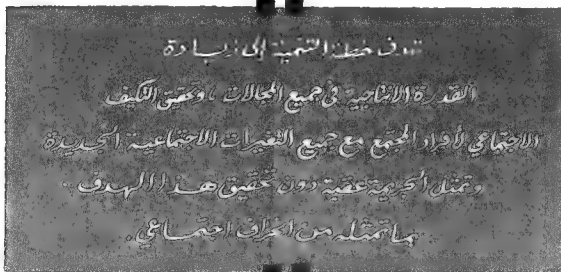 تهدف خطط التنمية إلى زيادة
القدرة الانتاجية في جميع المجالات ، وتحقيق التكيف
الاجتماعي لأفراد المجتمع مع جميع التغيرات الاجتماعية الجديدة
وتمثل الجريمة عقبة دون تحقيق هذا الهدف ..
بما تمثله من انحراف اجتماعي .